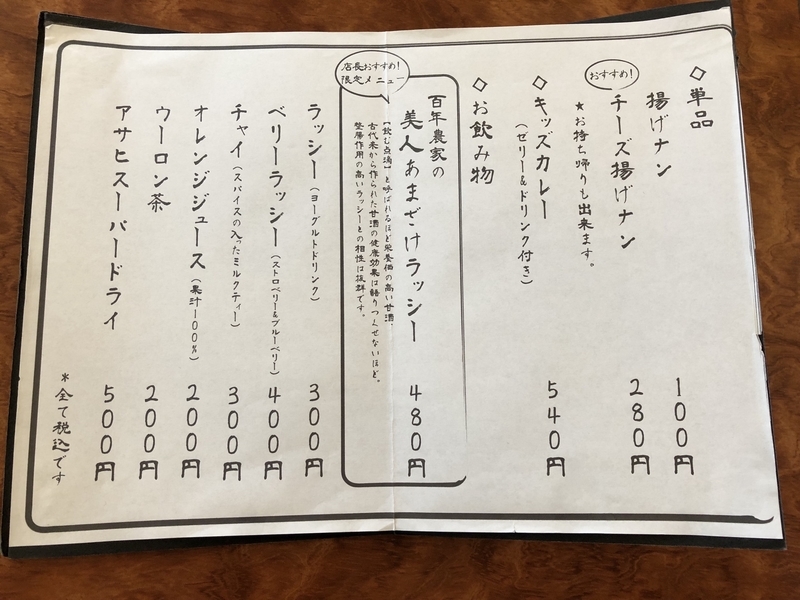 ◇単品
揚げナン 100円
おすすめ!
チーズ揚げナン 280円
★お持ち帰りも出来ます。
キッズカレー 540円
(ゼリー&ドリンク付き)
◇お飲み物
店長おすすめ!
限定メニュー
百年農家の
美人あまざけラッシー 480円
【飲む点滴】と呼ばれるほど栄養価の高い甘酒。
古代米から作られた甘酒の健康効果は語りつくせないほど。
整腸作用の高いラッシーとの相性は抜群です。
ラッシー(ヨーグルトドリンク) 300円
ベリーラッシー(ストロベリー&ブルーベリー) 400円
チャイ(スパイスの入ったミルクティー) 300円
オレンジジュース(果汁100%) 200円
ウーロン茶 200円
アサヒスーパードライ 500円
*全て税込です